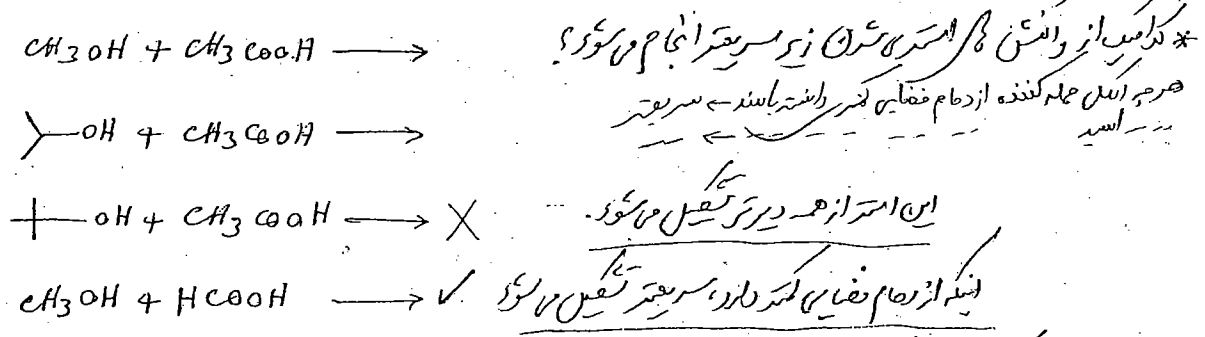 * کدامیک از واکنش های استری شدن زیر سریعتر انجام می شود؟
CH3OH + CH3COOH ⟶
هرچه الکل حمله کننده ازدحام فضایی کمتری داشته باشد ← سریعتر
اسید ← ــ
⟩—OH + CH3COOH ⟶
+—OH + CH3COOH ⟶ X این استر از همه دیرتر تشکیل می شود.
CH3OH + HCOOH ⟶ ✓ اینکه ازدحام فضایی کمتر دارد، سریعتر تشکیل می شود